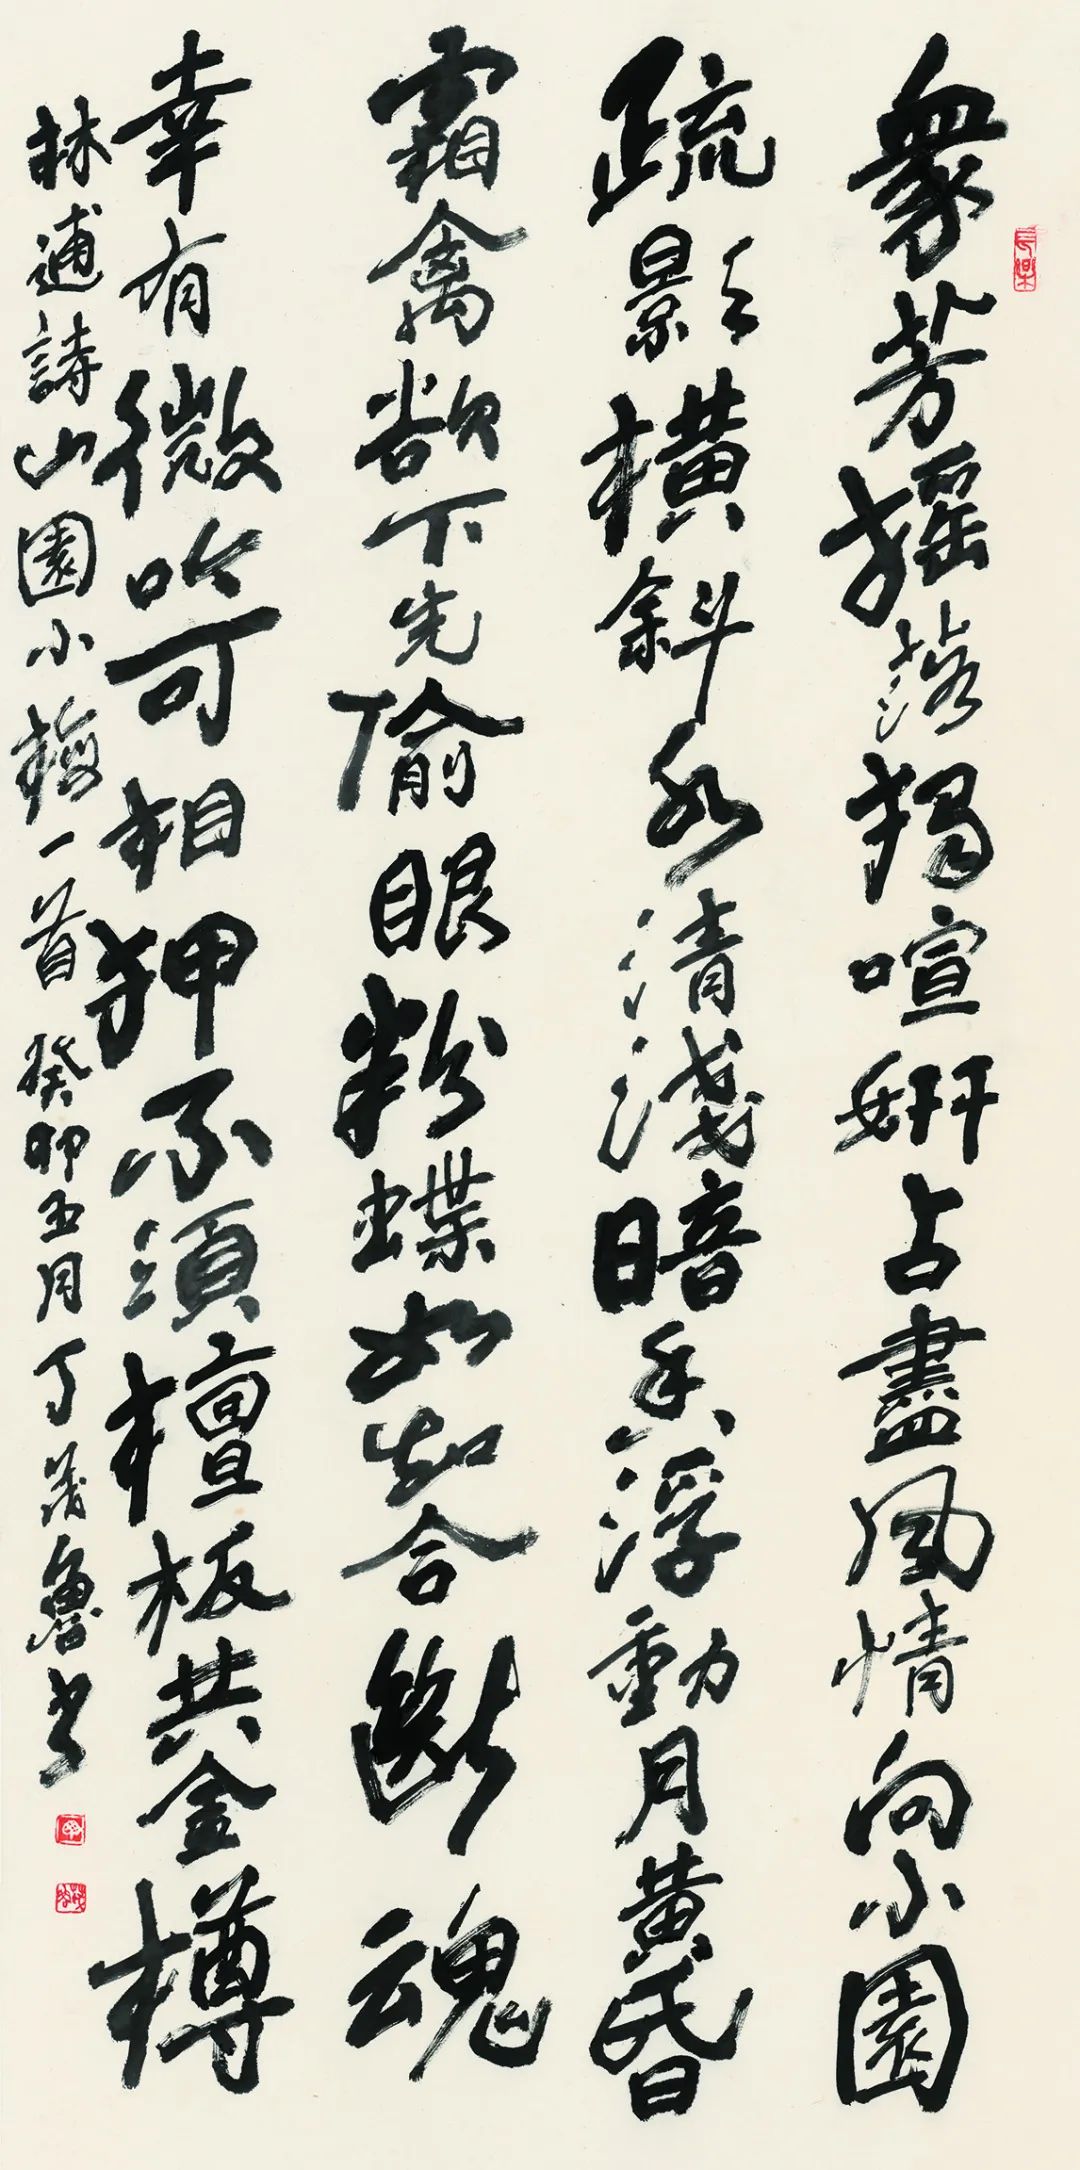 衆芳摇落獨喧妍占盡風情向小園
疏影横斜水清淺暗香浮動月黄昏
霜禽欲下先偷眼粉蝶如知合斷魂
幸有微吟可相狎不須檀板共金樽
林逋詩山園小梅一首 癸卯五月丁茂魯书
長樂